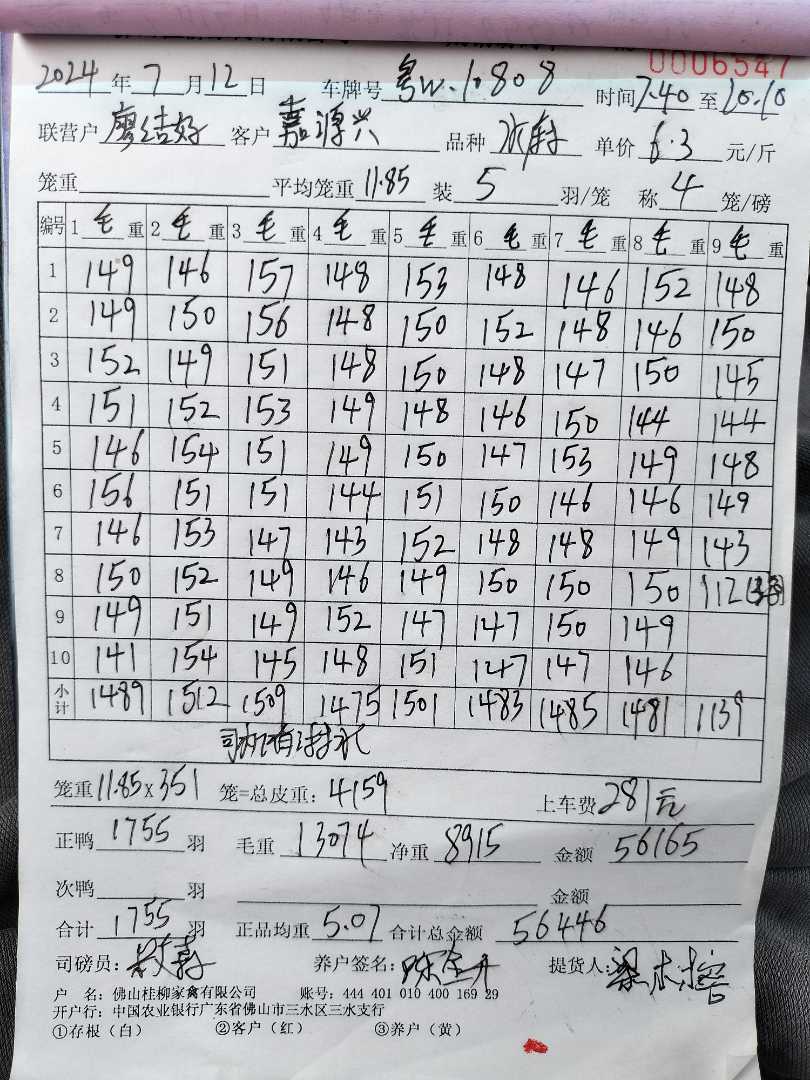 0006547
2024 年 7 月 12 日 车牌号 粤W.10808 时间 7.40 至 10.10
联营户 廖结好 客户 嘉源兴 品种 单价 6.3 元/斤
笼重 平均笼重 11.85 装 5 羽/笼 称 4 笼/磅
编号 1 毛 重 2 毛 重 3 毛 重 4 毛 重 5 毛 重 6 毛 重 7 毛 重 8 毛 重 9 毛 重
1 149 146 157 148 153 148 146 152 148
2 149 150 156 148 150 152 148 146 150
3 152 149 151 148 150 148 147 150 145
4 151 152 153 149 148 146 150 144 144
5 146 154 151 149 150 147 153 149 148
6 156 151 151 144 151 150 146 146 149
7 146 153 147 143 152 148 148 149 143
8 150 152 149 146 149 150 150 150 112
9 149 151 149 152 147 147 150 149
10 141 154 145 148 151 147 147 146
小计 1489 1512 1509 1475 1501 1483 1485 1481 1139
笼重 11.85X351 笼=总皮重: 4159 上车费 281元
正鸭 1755 羽 毛重 13074 净重 8915 金额 56165
次鸭 羽 金额
合计 1755 羽 正品均重 5.07 合计总金额 56446
司磅员: 养户签名: 提货人:
户 名: 佛山桂柳家禽有限公司 账号: 444 401 010 400 169 29
开户行: 中国农业银行广东省佛山市三水区三水支行
①存根（白） ②客户（红） ③养户（黄）